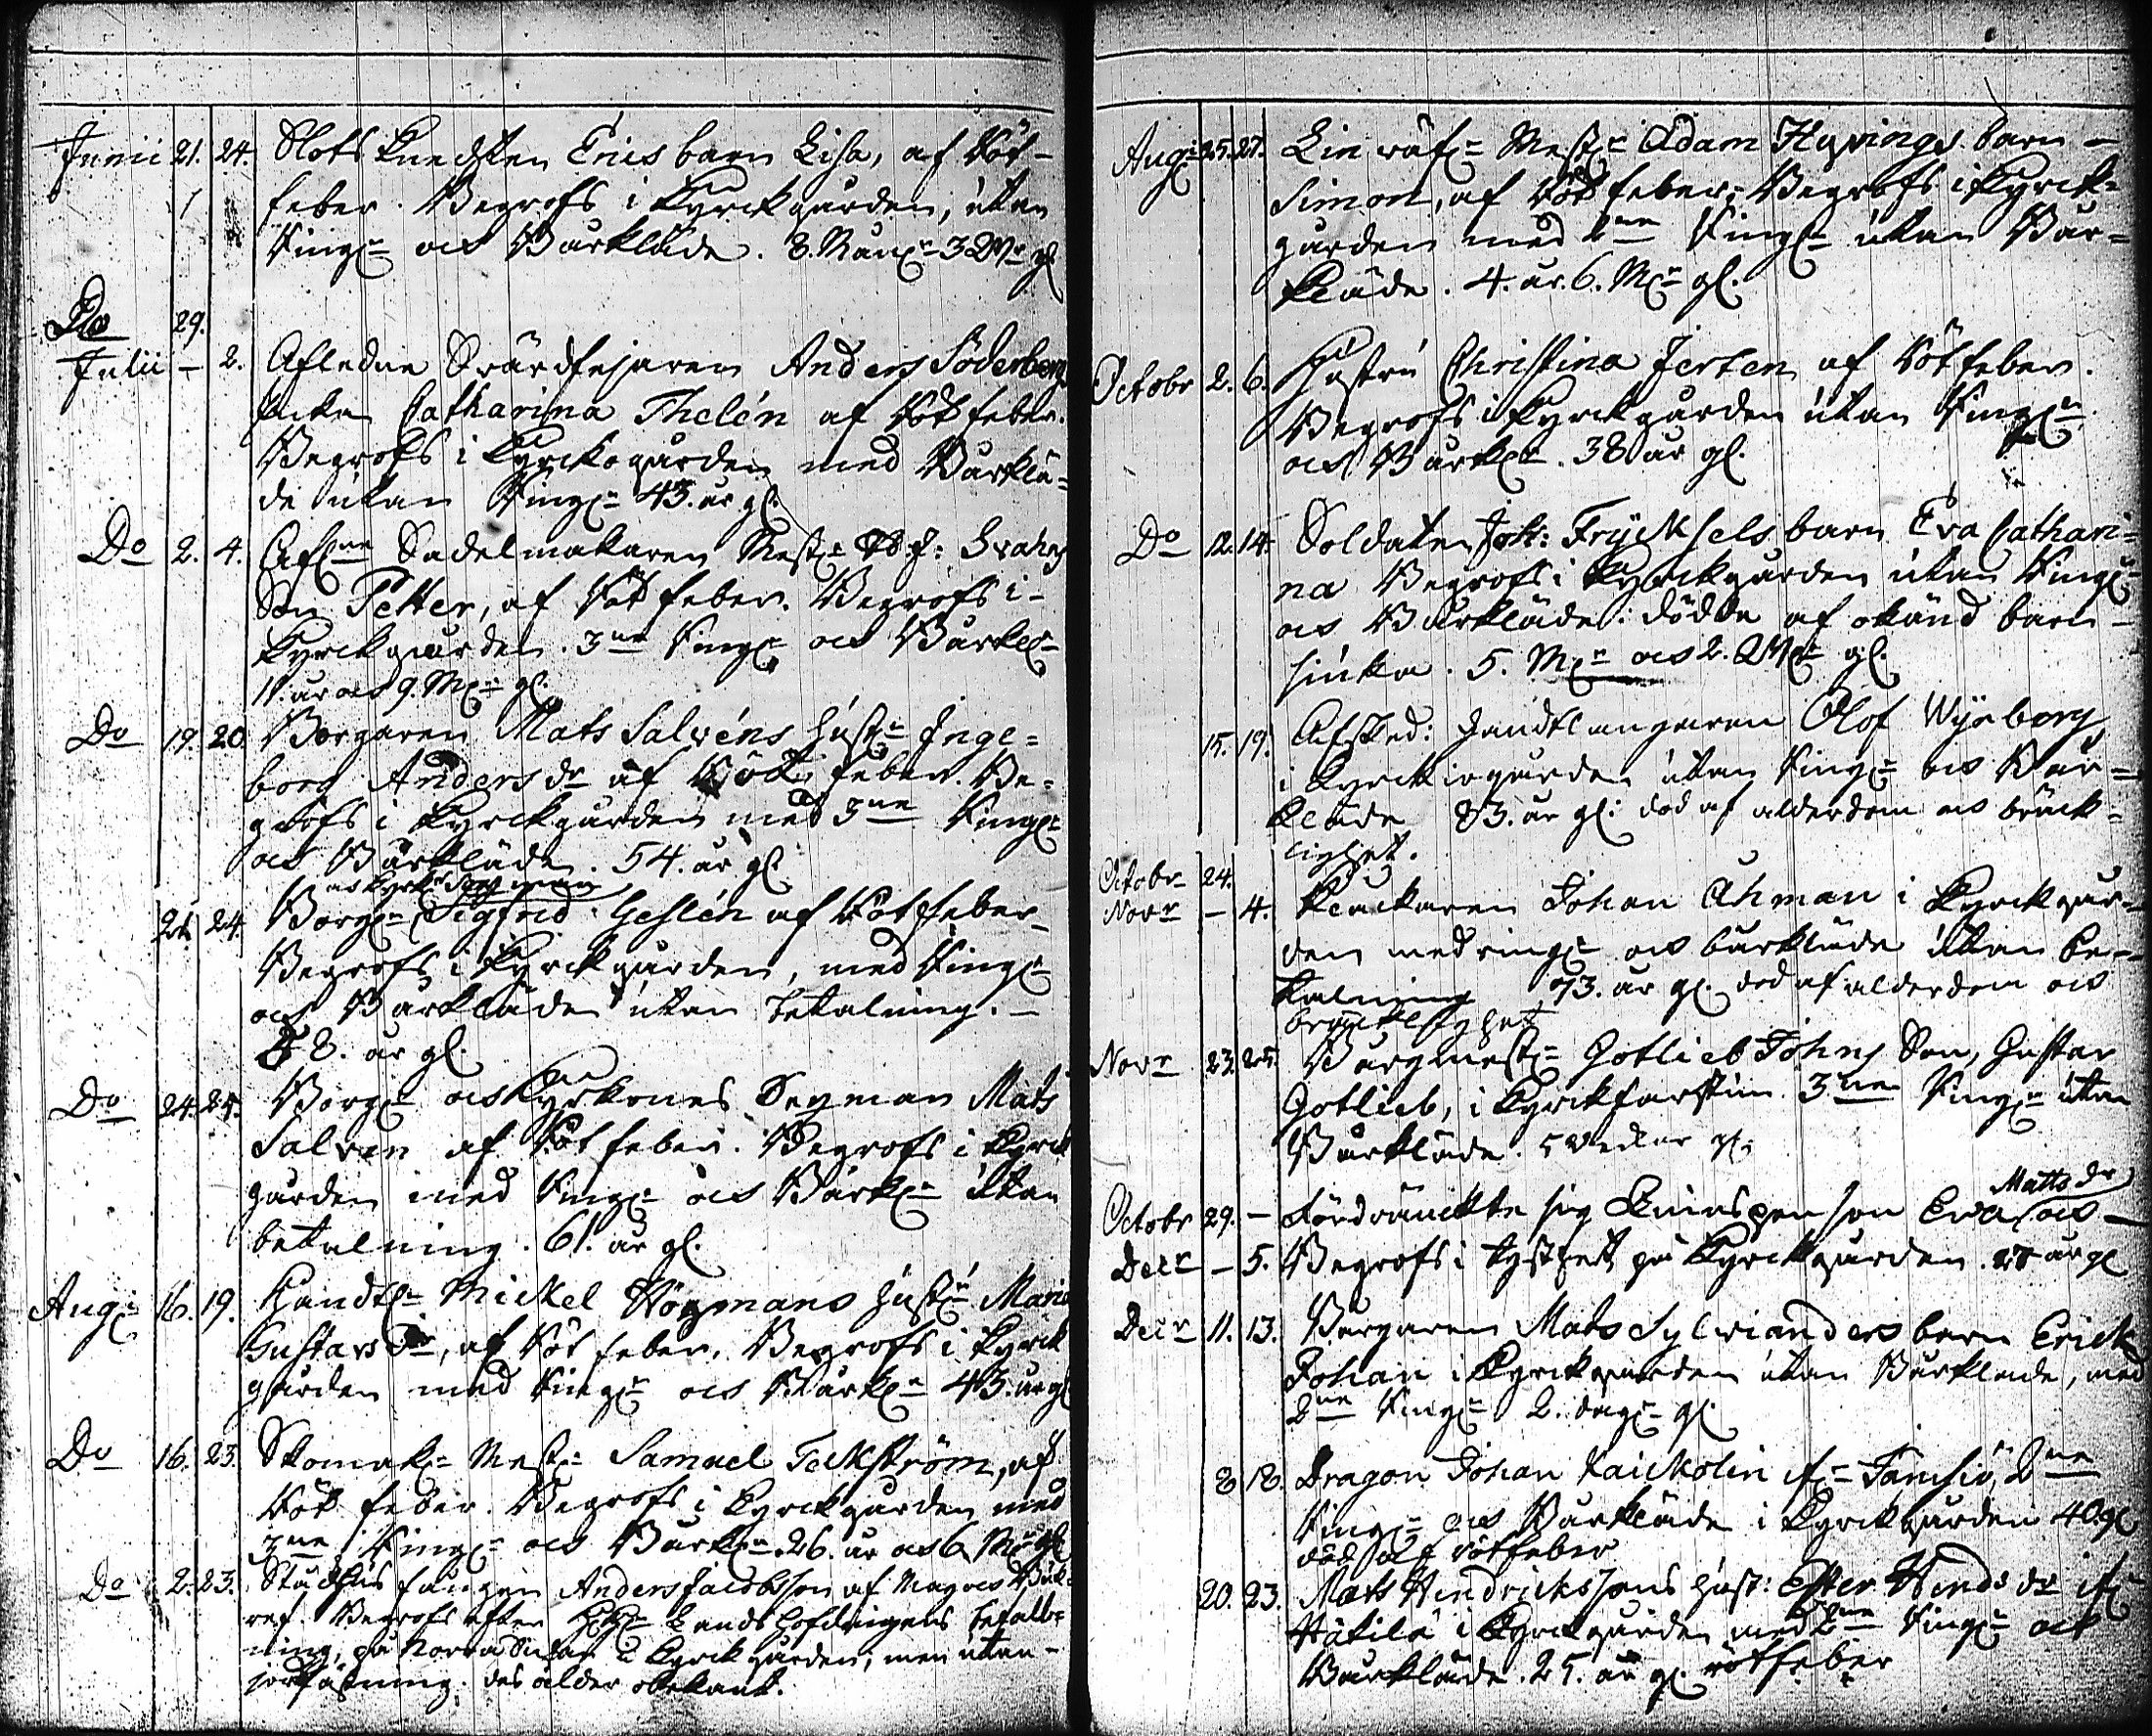 Junii 21. 24. Slots Knechten Erics barn Lisa, af Röt-
feber. Begrofs i Kyrckgården, utan
Ringn och Bårkläde. 8. Månr 3 Wr gl
Do 29.
Julii - 2. Afledne Svärdfejaren Anders Söderbergs
Enka Catharina Thelén af Rötfeber.
Begrofs i Kyrckogården med Bårklä=
de utan Ringn 43. år gl.
Do 2. 4. Aflne Sadelmakaren Mestr Svahns
Son Petter, af Rötfeber. Begrofs i
Kyrckgården. 3ne Ringr och Bårkl
11. år och 9. Mr gl.
Do 19. 20. Borgaren Mats Salvéns hustr Inge=
borg Andersdr af Röt feber. Be=
grofs i Kyrckgården med 3ne Ringr
och Bårkläde. 54. år gl.
och Kyrk
21. 24. Borgn Sigfrid Geslén af Rötfeber
Begrofs i Kyrckgården, med Ringn
och Bårkläde utan betalning.
58. år gl.
Do 24. 25. Borgn och Kyrkones Segman Mats
Salven af Rötfeber. Begrofs i Kyrck
gården med Ringn och Bårkln utan
betalning. 61. år gl.
Augn 16. 19. Handln Mickel Högmans hustru Maria
Gustavsdr, af Röt feber. Begrofs i Kyrck
gården med Ringn och Bårkln 43. år gl
Do 16. 23. Skomakn Mestr Samuel Teckström, af
Röt feber. Begrofs i Kyrckgården med
3ne Ringn och Bårkln 26. år och 6 Mr gl
Do 2. 23. Stadshus fången Anders Jacobsson af
Begrofs efter Landshöfdingens befall=
ning, på Norra Sidan i Kyrckgården, men utan
jordfästning. des ålder obekant.
Augn 25. 27. Linväfn Mestr Adam Hyvings barn
Simon, af Röt feber, Begrofs i Kyrck=
gården med 2ne Ringr utan Bår=
kläde. 4. år. 6. Mr gl.
Octobr 2. 6. Hustru Christina Jerten af Rötfeber.
Begrofs i Kyrckgården utan Ringn
och Bårkln. 38 år gl.
Do 12. 14. Soldaten Joh: Frycksels barn Eva Cathari=
na Begrofs i Kyrckgården utan Ringn
och Bårkläde: dödde af okänd barn
siuka. 5. Mr och 2. Wr gl.
15. 19. Afsked: handtlangaren Olof Wyborg
i Kyrckiogården utan Ringn och Bår=
kläde 83. år gl: död af ålderdom och bräck=
lighet.
Octobr 24.
Novr - 4. Klockaren Johan Åhman i Kyrckgår=
den med ringn och bårkläde utan be=
talning 73. år gl. död af ålderdom och
bräcklighet
Novr 23. 25. Bårgmestr Gotlieb Johns Son, Gustav
Gotlieb, i Kyrckfarstun. 3ne Ringr utan
Bårkläde. 5 Wekor gl.
Matts dr
Octobr 29. - Fördränckte sig Quinspersonen Eva och
Decr - 5. Begrofs i tysthet på Kyrckgården. 28 år gl
Decr 11. 13. Borgaren Mats Sylvianders barn Erick
Johan i Kyrckgården utan Bårkläde, med
2ne Ringr 2. dagr gl.
8 18. Dragon Johan Kaickolin ifr 2ne
Ringr och Bårkläde i Kyrckgården 40. gl
död af rötfeber
20. 23. Mats Hendrickssons hust: Ester Hendsdr ifr
Hätilä i Kyrckgården med 2ne Ringr och
Bårkläde. 25. år gl. rötfeber